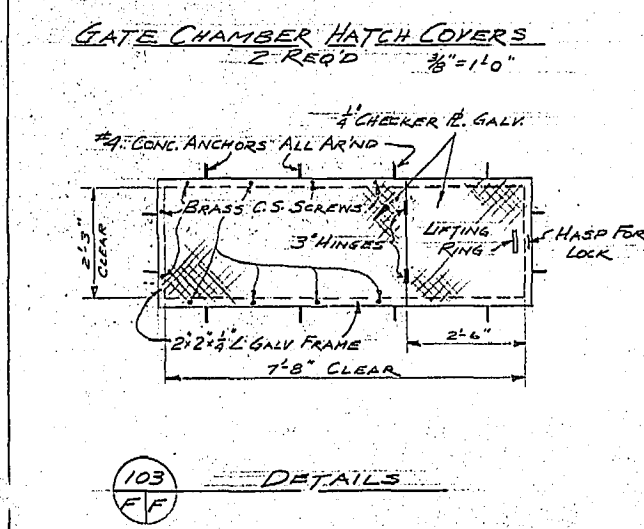 GATE CHAMBER HATCH COVERS
2 REQ'D 3/8" = 1'-0"
1/4" CHECKER PL. GALV.
#4 CONC. ANCHORS ALL AR'ND
BRASS C.S. SCREWS
3" HINGES
LIFTING
RING
HASP FOR
LOCK
2'-3"
CLEAR
2"x2"x1/4" L GALV FRAME
2'-6"
7'-8" CLEAR
103
F F
DETAILS